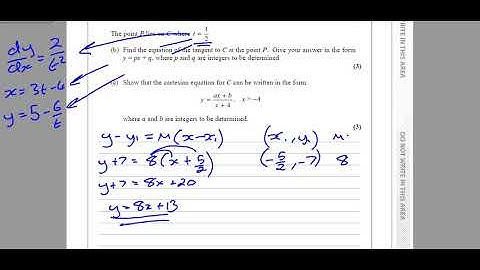 The point P lies on C where t = 1/2
(b) Find the equation of the tangent to C at the point P. Give your answer in the form
y = px + q, where p and q are integers to be determined.
(3)
(c) Show that the cartesian equation for C can be written in the form
y = (ax + b)/(x + 4), x > -4
where a and b are integers to be determined.
(3)
dy/dx = 2/t²
x = 3t - 4
y = 5 - 6/t
y - y₁ = m(x - x₁)
(x₁, y₁) m.
y + 7 = 8(x + 5/2)
(-5/2, -7) 8
y + 7 = 8x + 20
y = 8x + 13
WRITE IN THIS AREA
DO NOT WRITE IN THIS AREA